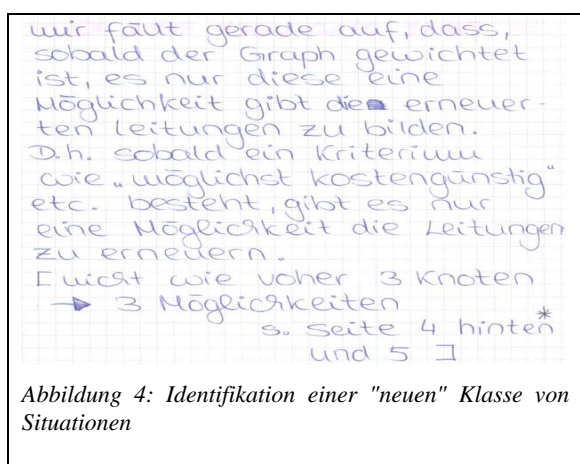 mir fällt gerade auf, dass,
sobald der Graph gewichtet
ist, es nur diese eine
Möglichkeit gibt die erneuer-
ten Leitungen zu bilden.
D.h. sobald ein Kriterium
wie „möglichst kostengünstig"
etc. besteht, gibt es nur
eine Möglichkeit die Leitungen
zu erneuern.
[nicht wie voher 3 Knoten
→ 3 Möglichkeiten
s. Seite 4 hinten*
und 5 ]
Abbildung 4: Identifikation einer "neuen" Klasse von
Situationen